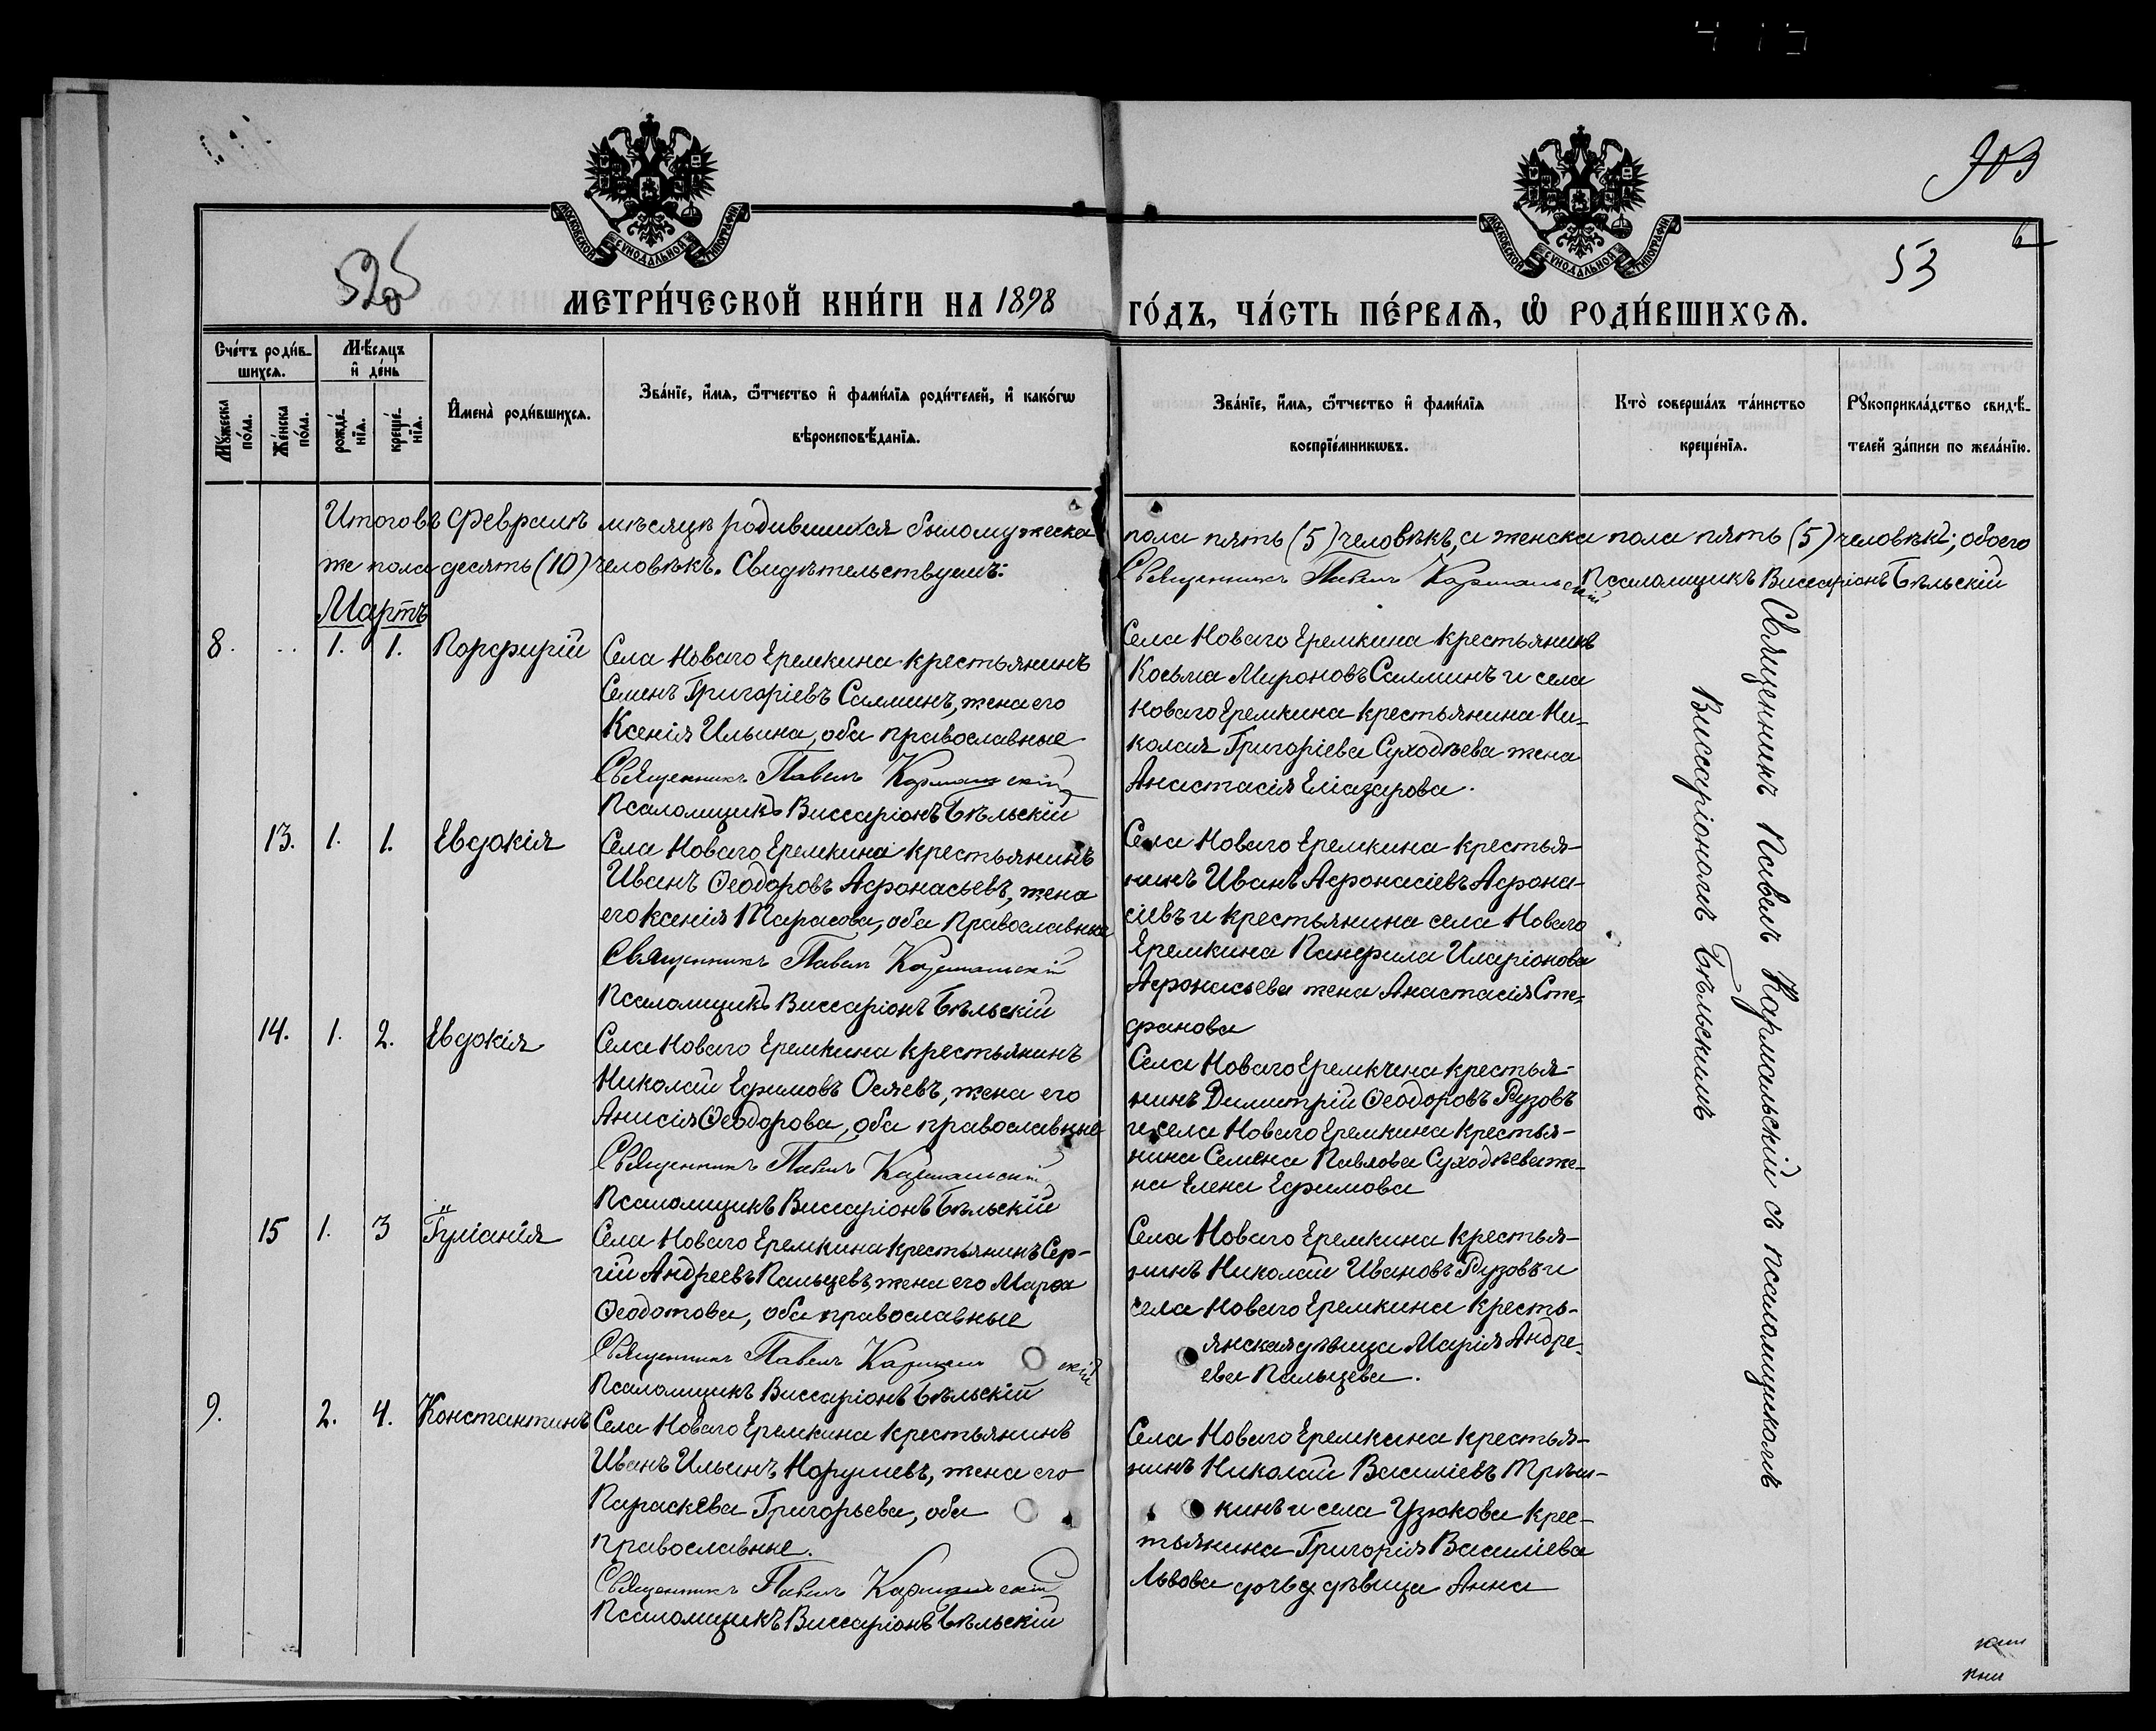 903
6
525
53
МОСКОВСКОЙ СѴНОДАЛЬНОЙ ТИПОГРАФІИ
МОСКОВСКОЙ СѴНОДАЛЬНОЙ ТИПОГРАФІИ
МЕТРИ́ЧЕСКОЙ КНИ́ГИ НА 1898 ГО́ДЪ, ЧА́СТЬ ПЕ́РВАѦ, Ѡ҆ РОДИ́ВШИХСѦ.
Сче́тъ роди́в-
шихсѧ.
Мѣ́сѧцъ
и҆ де́нь
Мꙋ́жеска
по́ла.
Же́нска
по́ла.
рожде́-
нїѧ.
креще́-
нїѧ.
И҆мена̀ роди́вшихсѧ.
Зва́нїе, и҆́мѧ, ѻ҆́тчество и҆ фами́лїѧ роди́телей, и҆ како́гѡ
вѣроисповѣ́данїѧ.
Зва́нїе, и҆́мѧ, ѻ҆́тчество и҆ фами́лїѧ
воспрїе́мникѡвъ.
Кто̀ соверша́лъ та́инство
креще́нїѧ.
Рꙋкоприкла́дство свидѣ́-
телей за́писи по жела́нїю.
Итого въ Февралѣ мѣсяцѣ родившихся было мужеска пола пять (5) человѣкъ, а женска пола пять (5) человѣкъ; обоего
же пола десять (10) человѣкъ. Свидѣтельствуемъ: Священникъ Павелъ Кармальскій Псаломщикъ Виссаріонъ Бѣльскій
Мартъ
8. .. 1. 1. Порфирій
Села Новаго Еремкина крестьянинъ
Семенъ Григоріевъ Салминъ, жена его
Ксенія Ильина, оба православные
Священникъ Павелъ Кармальскій
Псаломщикъ Виссаріонъ Бѣльскій
Села Новаго Еремкина крестьянинъ
Косьма Мироновъ Салминъ и села
Новаго Еремкина крестьянина Ни-
колая Григоріева Суходѣева жена
Анастасія Еліазарова.
13. 1. 1. Евдокія
Села Новаго Еремкина крестьянинъ
Иванъ Ѳеодоровъ Афонасьевъ, жена
его Ксенія Тарасова, оба Православные
Священникъ Павелъ Кармальскій
Псаломщикъ Виссаріонъ Бѣльскій
Села Новаго Еремкина крестья-
нинъ Иванъ Афонасіевъ Афона-
сіевъ и крестьянина села Новаго
Еремкина Панфила Иларіонова
Афонасьева жена Анастасія Сте-
фанова
14. 1. 2. Евдокія
Села Новаго Еремкина крестьянинъ
Николай Ефимовъ Осяевъ, жена его
Анисія Ѳеодорова, оба православные
Священникъ Павелъ Кармальскій
Псаломщикъ Виссаріонъ Бѣльскій
Села Новаго Еремкина крестья-
нинъ Димитрій Ѳеодоровъ Рузовъ
и села Новаго Еремкина крестья-
нина Семена Павлова Суходѣева же-
на Елена Ефимова
15 1. 3 Іуліанія
Села Новаго Еремкина крестьянинъ Сер-
гій Андреевъ Пальцевъ, жена его Марѳа
Ѳеодотова, оба православные
Священникъ Павелъ Кармальскій
Псаломщикъ Виссаріонъ Бѣльскій
Села Новаго Еремкина крестья-
нинъ Николай Ивановъ Рузовъ и
села Новаго Еремкина кресть-
янская дѣвица Марія Андре-
ева Пальцева.
9. 2. 4. Константинъ
Села Новаго Еремкина крестьянинъ
Иванъ Ильинъ Норушевъ, жена его
Параскева Григорьева, оба
православные.
Священникъ Павелъ Кармальскій
Псаломщикъ Виссаріонъ Бѣльскій
Села Новаго Еремкина крестья-
нинъ Николай Василіевъ Трѣш-
кинъ и села Узюкова крес-
тьянина Григорія Василіева
Львова дочь дѣвица Анна
Священникъ Павелъ Кармальскій съ псаломщикомъ
Виссаріономъ Бѣльскимъ